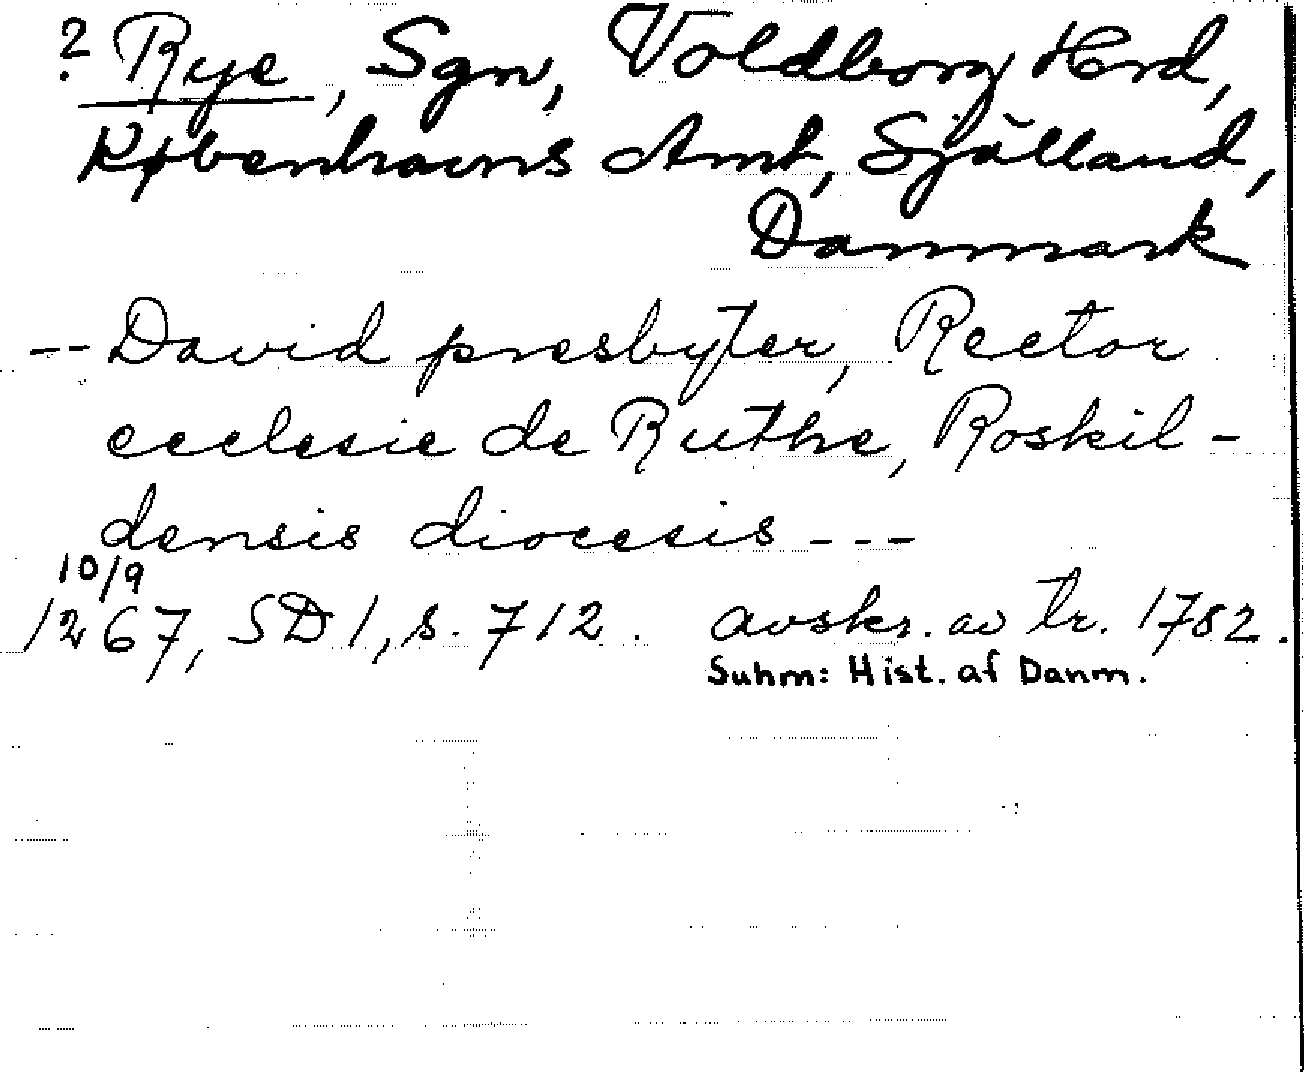 ? Rye, Sgn, Voldborg Hrd,
Københavns Amt, Själland,
Danmark
-- David presbyter, Rector
ecclesie de Ruthe, Roskil-
densis diocesis ---
10/9
1267, SD 1, s. 712. avskr. av tr. 1782.
Suhm: Hist. af Danm.